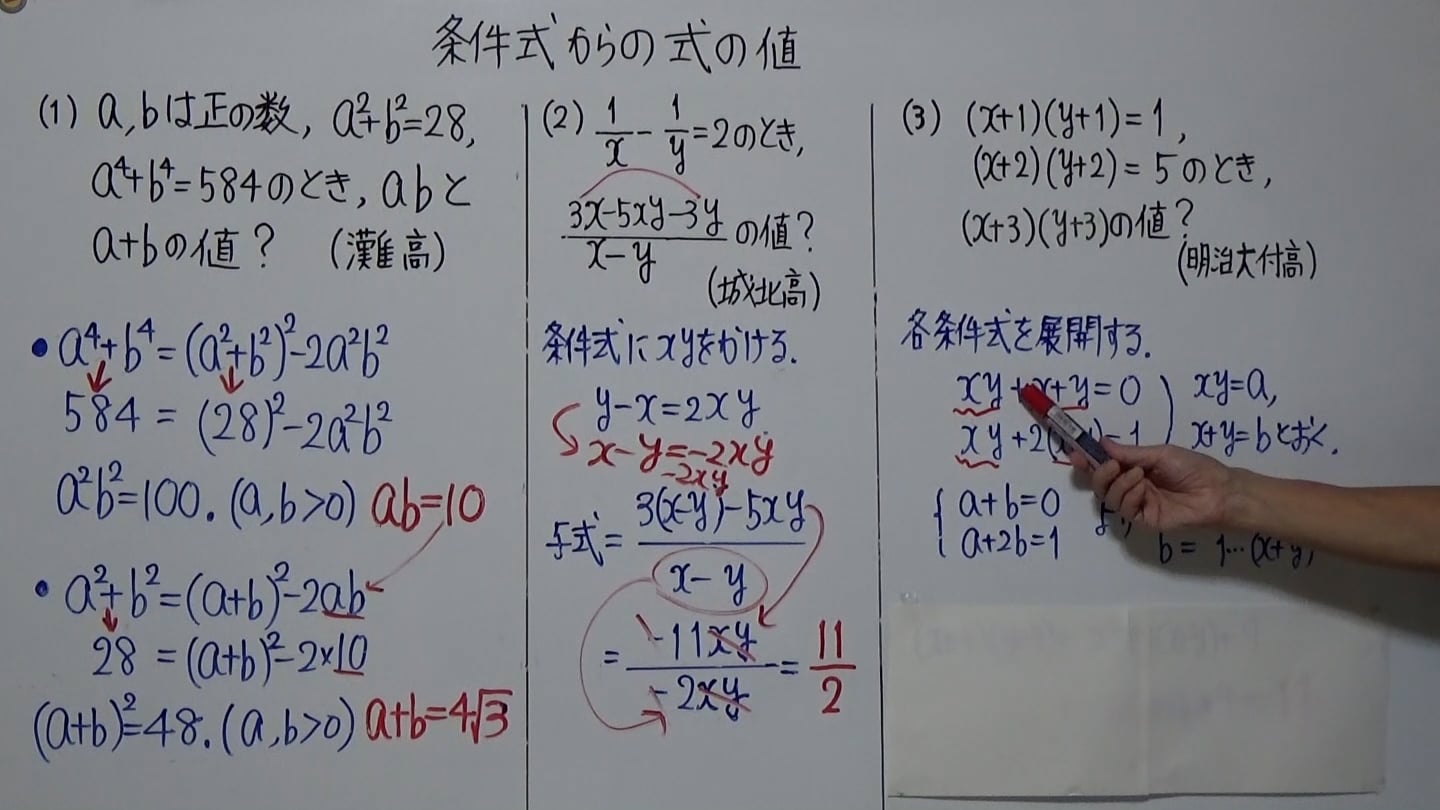 条件式からの式の値
(1) a, bは正の数, a²+b²=28,
a⁴+b⁴=584のとき, abと
a+bの値? (灘高)
• a⁴+b⁴=(a²+b²)²-2a²b²
584 = (28)²-2a²b²
a²b²=100. (a,b>0) ab=10
• a²+b²=(a+b)²-2ab
28 = (a+b)²-2×10
(a+b)²=48. (a,b>0) a+b=4√3
(2) 1/x - 1/y =2のとき,
(3x-5xy-3y)/(x-y) の値?
(城北高)
条件式にxyをかける.
y-x=2xy
x-y=-2xy
-2xy
与式= (3(x-y)-5xy)/(x-y)
= (-11xy)/(-2xy) = 11/2
(3) (x+1)(y+1)=1,
(x+2)(y+2)=5のとき,
(x+3)(y+3)の値?
(明治大付高)
各条件式を展開する.
xy+x+y=0 xy=a,
xy+2( )=1 x+y=bとおく.
a+b=0
a+2b=1
b= 1…(x+y)